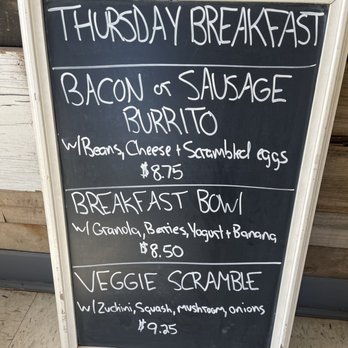 THURSDAY BREAKFAST
BACON or SAUSAGE
BURRITO
w/Beans, Cheese + Scrambled eggs
$8.75
BREAKFAST BOWl
w/ Granola, Berries, Yogurt + Banana
$8.50
VEGGIE SCRAMBLE
w/ Zuchini, Squash, mushroom, onions
$9.25